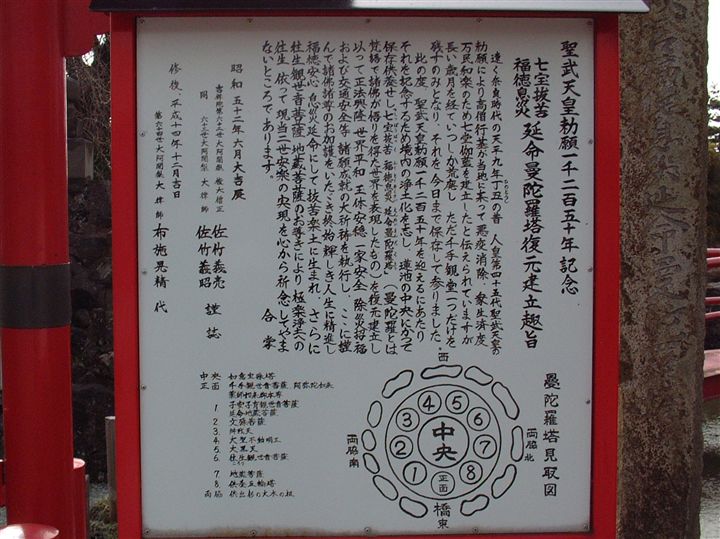 聖武天皇勅願一千二百五十年 記念
七宝抜苦
福徳息災 延命曼陀羅塔復元建立趣旨
遠く奈良時代の天平九年丁丑の昔 人皇第四十五代聖武天皇の
勅願により高僧行基が当地に来って 悪疫消除、衆生済度、
万民和楽のため七堂伽藍を建立したと伝えられていますが
長い歳月を経ていつしか荒廃し ただ千手観堂一つだけを
残すのみとなり、それを今日まで保存して参りました。
此の度、聖武天皇勅願一千二百五十年を迎えるにあたり
それを記念するため境内の浄土化を志し 蓮池の中央にかつて
保存供養せし七宝抜苦 福徳息災 延命曼陀羅塔 (曼陀羅とは
梵語で諸仏が悟りを得た世界を表現したもの)を復元建立し
以って正法興隆 世界平和 玉体安穏 一家安全 除災招福
および交通安全等 諸願成就の大祈祷を執行し、ここに謹
んで諸仏諸尊のお加護をいただき終始輝しき人生に精進し
福徳安心 息災延命にして抜苦楽土に生まれ、さらに
往生観世音菩薩 地蔵菩薩のお導きにより極楽浄土への
往生 依って 現当二世安楽の実現を心から祈念してやま
ないところであります。
合掌
昭和五十二年六月大吉辰
吉祥院第六十二世大阿闍梨 権大僧正 佐竹義亮
同 六十三世大阿闍梨 大律師 佐竹義昭 謹誌
修復、平成十四年十二月吉日
第六十四世大阿闍梨 大律師 布施晃精 代
曼陀羅塔見取図
西
両脇北
両脇南
中央
1
2
3
4
5
6
7
8
正面
橋
東
中央 如意宝珠塔
正面 千手観世音菩薩、阿弥陀如来
薬師如来御本尊
1 子安子育観世音菩薩
延命地蔵菩薩
2 文殊菩薩
3 弁財天
4 大聖不動明王
5 大黒天
6 往生観世音菩薩
7 地蔵菩薩
8 供養五輪塔
両脇 供出杉の大木の根